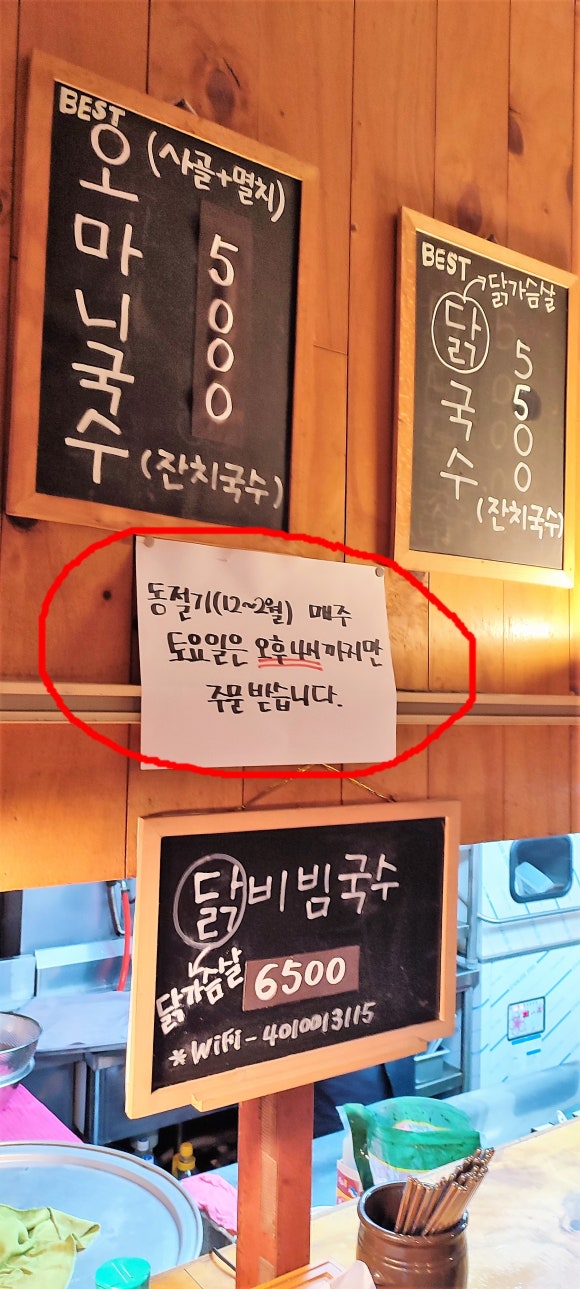 BEST
오마니국수
(사골+멸치)
5000
(잔치국수)
BEST
닭가슴살
닭국수
5500
(잔치국수)
동절기(12~2월) 매주
토요일은 오후4시까지만
주문받습니다.
닭비빔국수
닭가슴살
6500
*WiFi-4010013115